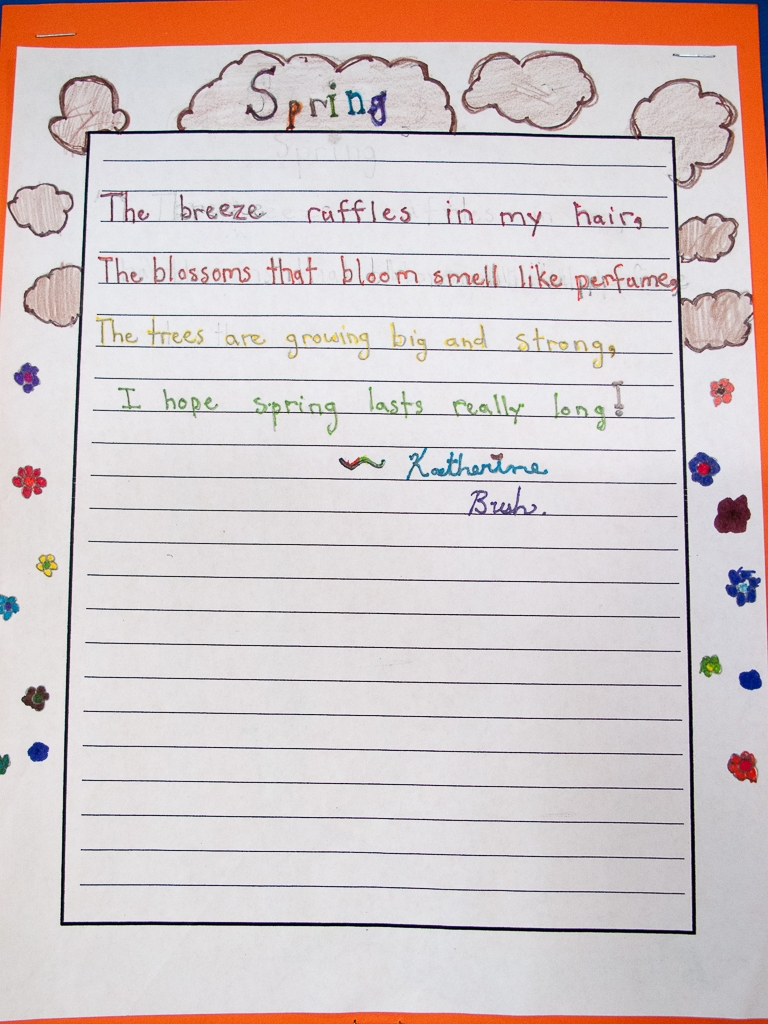 Spring
The breeze ruffles in my hair,
The blossoms that bloom smell like perfume,
The trees are growing big and strong,
I hope spring lasts really long!
~ Katherine
Brush.